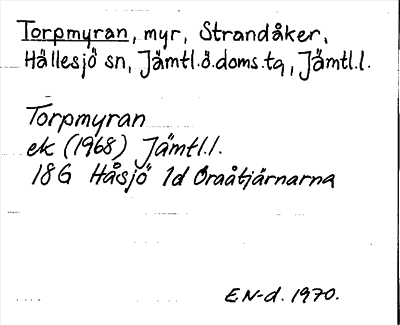 Torpmyran, myr, Strandåker,
Hällesjö sn, Jämtl.ö.doms.tg, Jämtl.l.
Torpmyran
ek (1968) Jämtl.l.
18G Håsjö 1d Oraåtjärnarna
EN-d. 1970.